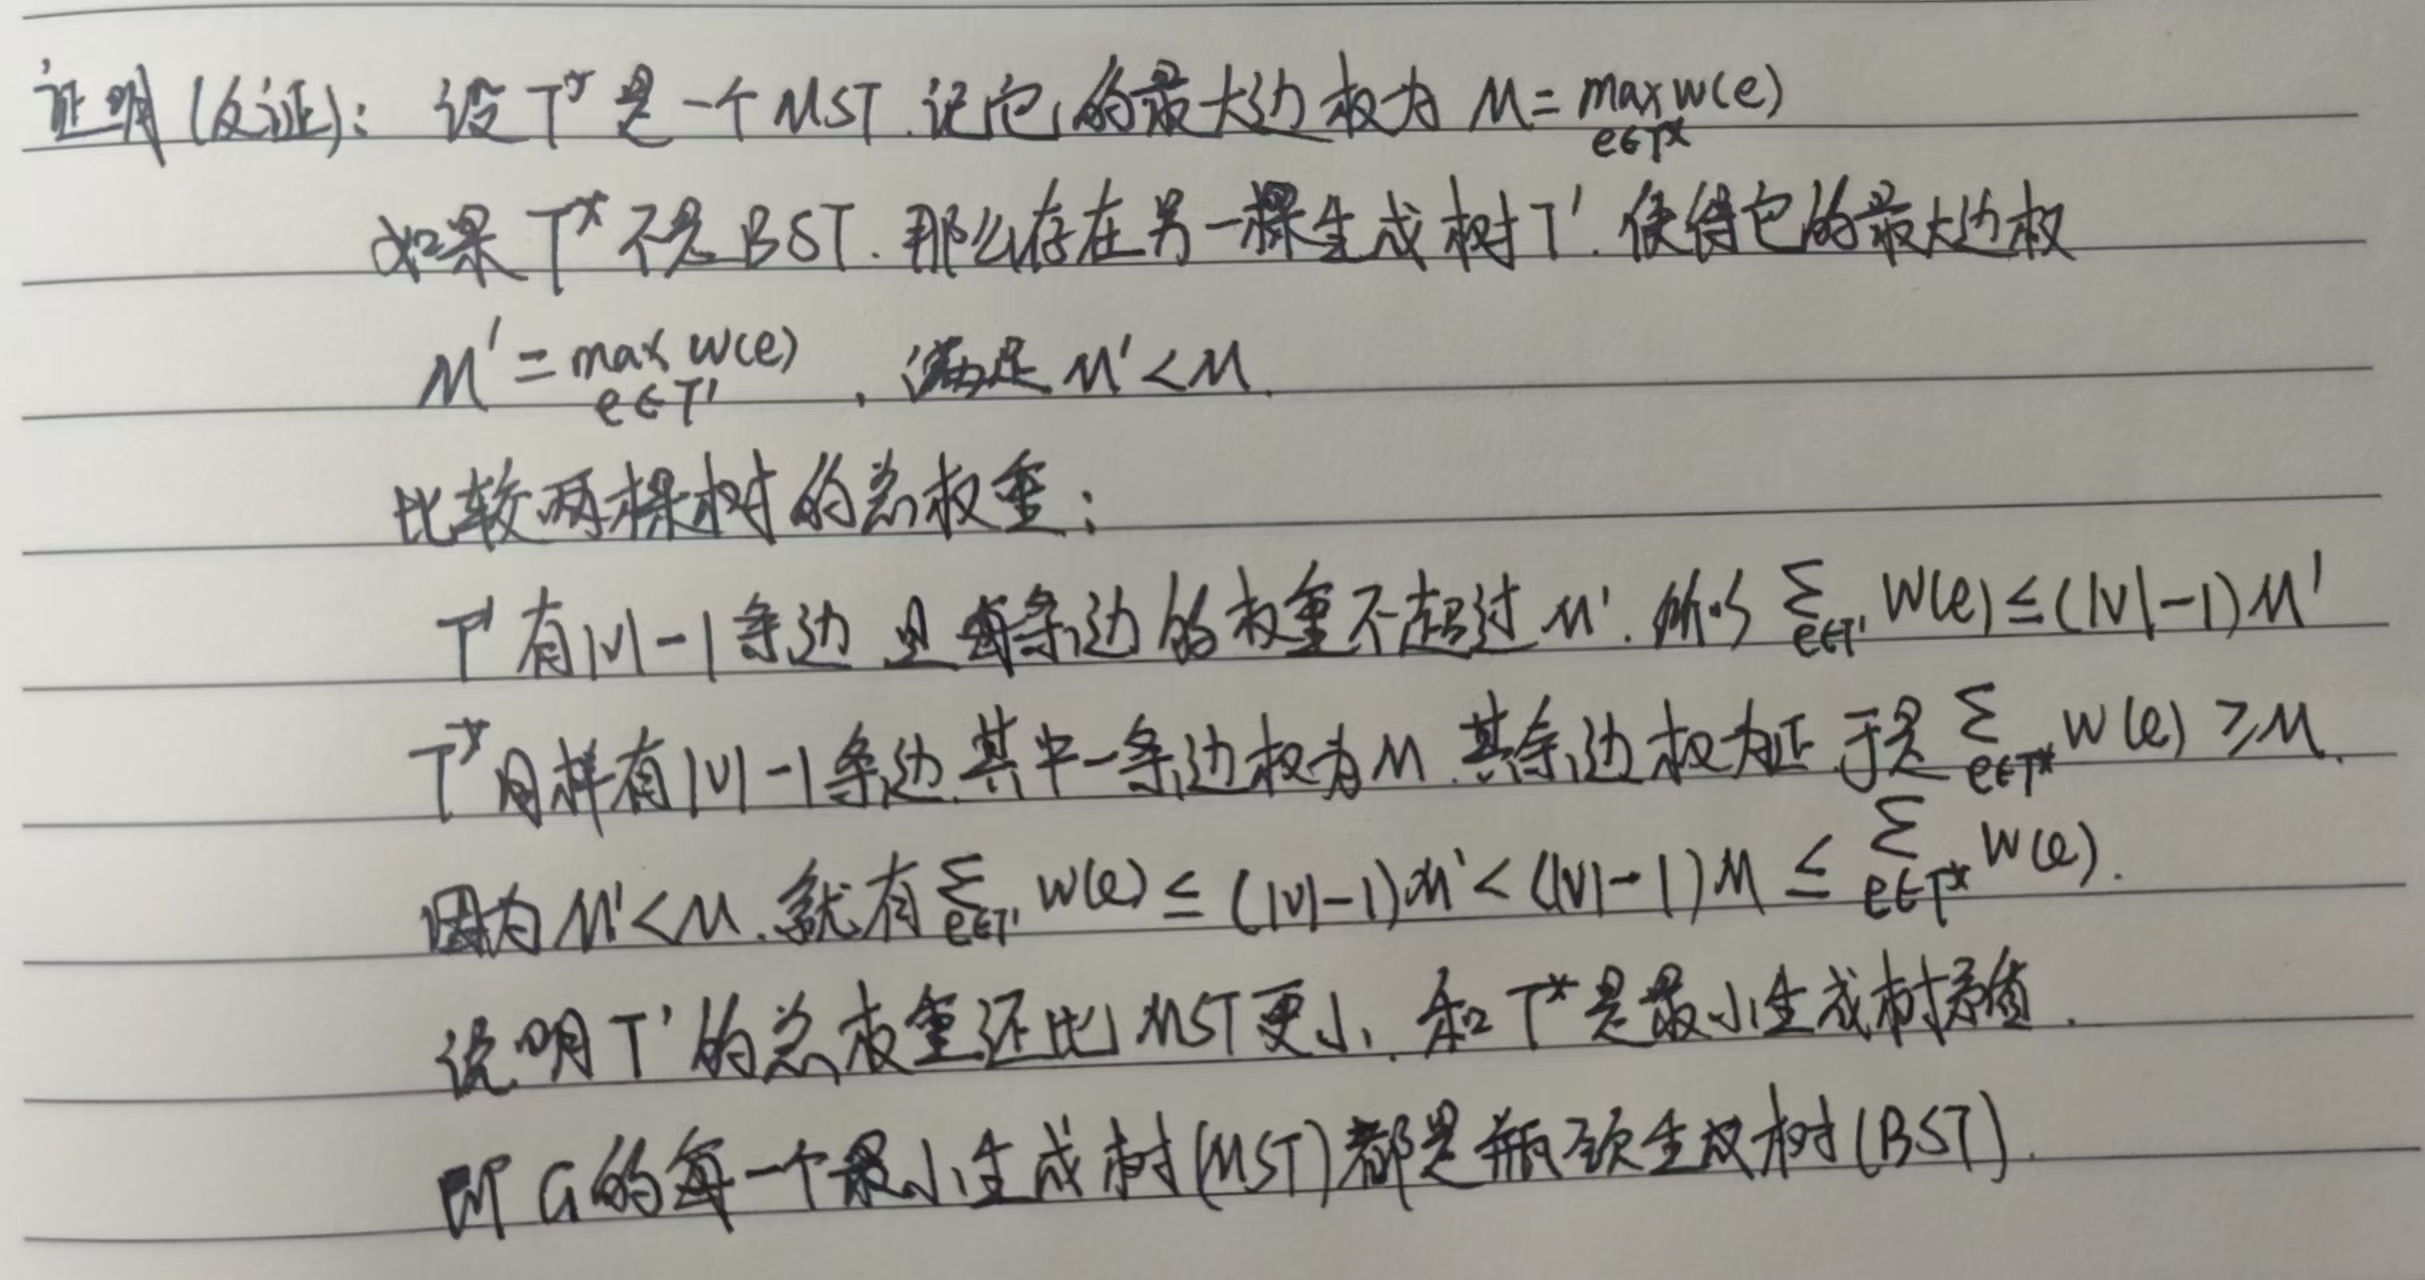 证明(反证): 设 T* 是一个 MST. 记它的最大边权为 M = max w(e) e∈T*
如果 T* 不是 BST. 那么存在另一棵生成树 T'. 使得它的最大边权
M' = max w(e) e∈T' , 满足 M' < M.
比较两棵树的总权重:
T' 有 |V|-1 条边 且每条边的权重不超过 M'. 所以 Σ e∈T' W(e) ≤ (|V|-1)M'
T* 同样有 |V|-1 条边. 其中一条边权为 M. 其余边权为正 于是 Σ e∈T* W(e) ≥ M.
因为 M' < M. 就有 Σ e∈T' W(e) ≤ (|V|-1)M' < (|V|-1)M ≤ Σ e∈T* W(e).
说明 T' 的总权重还比 MST 更小. 和 T* 是最小生成树矛盾.
即 G 的每一个最小生成树(MST)都是瓶颈生成树(BST).